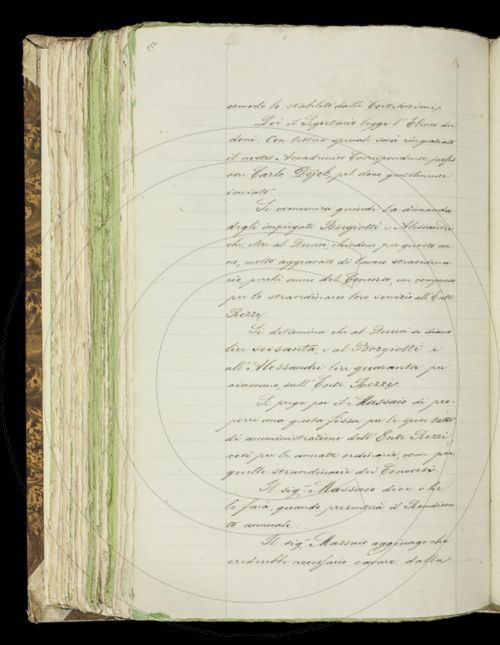 secondo lo stabilito dalle Costituzioni.
Poi il Segretario legge l'Elenco dei
doni. Con lettera speciale sarà ringraziato
il nostro Accademico Corrispondente, profes
sore Carlo pel dono gentilmente
inviato.
Si comunica quindi la dimanda
degli impiegati Borgiotti e Alessandri
che, oltre al Ducci, chiedono per questo an
no, molto aggravato di lavoro straordina
rio, perchè anno del Concorso, un compenso
per lo straordinario loro servizio all'Ente
Rezzi.
Si determina che al Ducci si diano
lire sessanta, e al Borgiotti e
all'Alessandri lire quaranta per
ciascuno, sull'Ente Rezzi.
Si prega poi il Massaio di pro-
porre una quota fissa per le spese tutte
di amministrazione dell'Ente Rezzi,
così per le annate ordinarie, come per
quelle straordinarie dei Concorsi.
Il sig.r Massaio dice che
lo farà, quando presenterà il Rendicon-
to annuale.
Il sig.r Massaio aggiunge che
crederebbe necessario cavare dalla